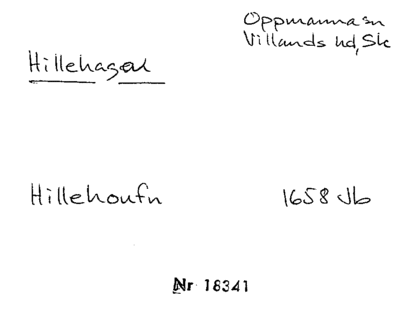 Oppmanna sn
Villands hd, Sk
Hillehagen
Hillehoufn 1658 Jb
Nr 18341